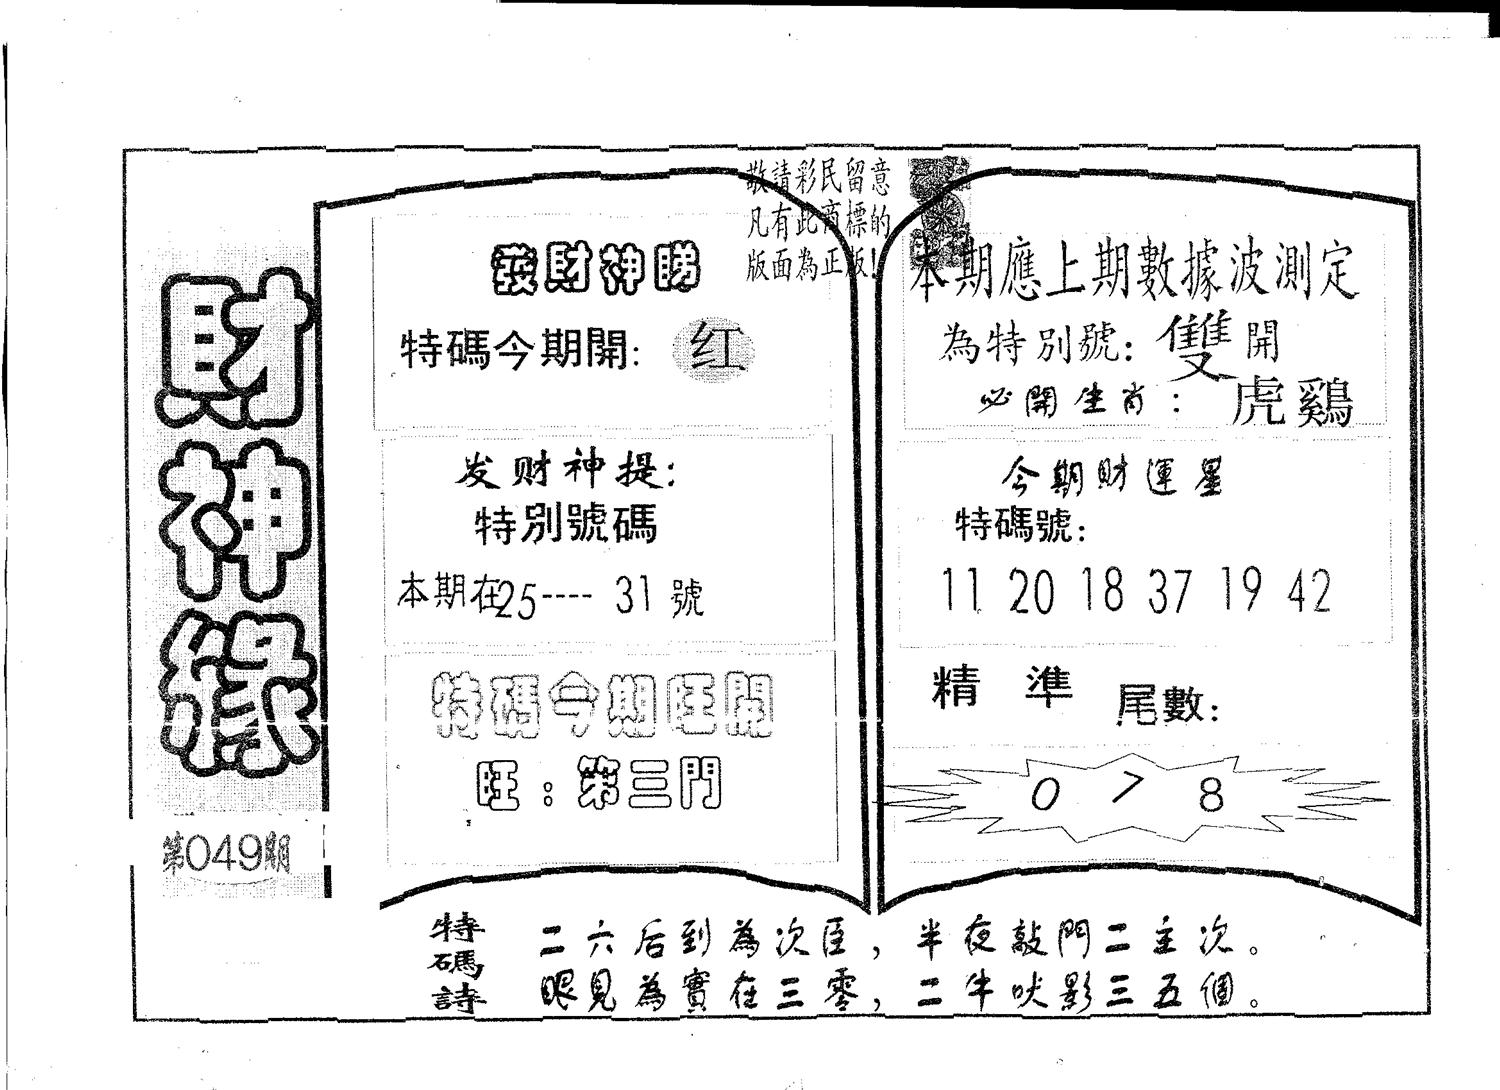 財神緣
第049期
敬請彩民留意
凡有此商標的
版面為正版!
發財神睇
特碼今期開: 红
发财神提:
特別號碼
本期在25---- 31號
特碼今期旺開
旺:第三門
本期應上期數據波測定
為特別號: 雙開
必開生肖: 虎鷄
今期財運星
特碼號:
11 20 18 37 19 42
精準 尾數:
0 7 8
特碼詩
二六后到為次臣,半夜敲門二主次。
眼見為實在三零,二牛吠影三五個。